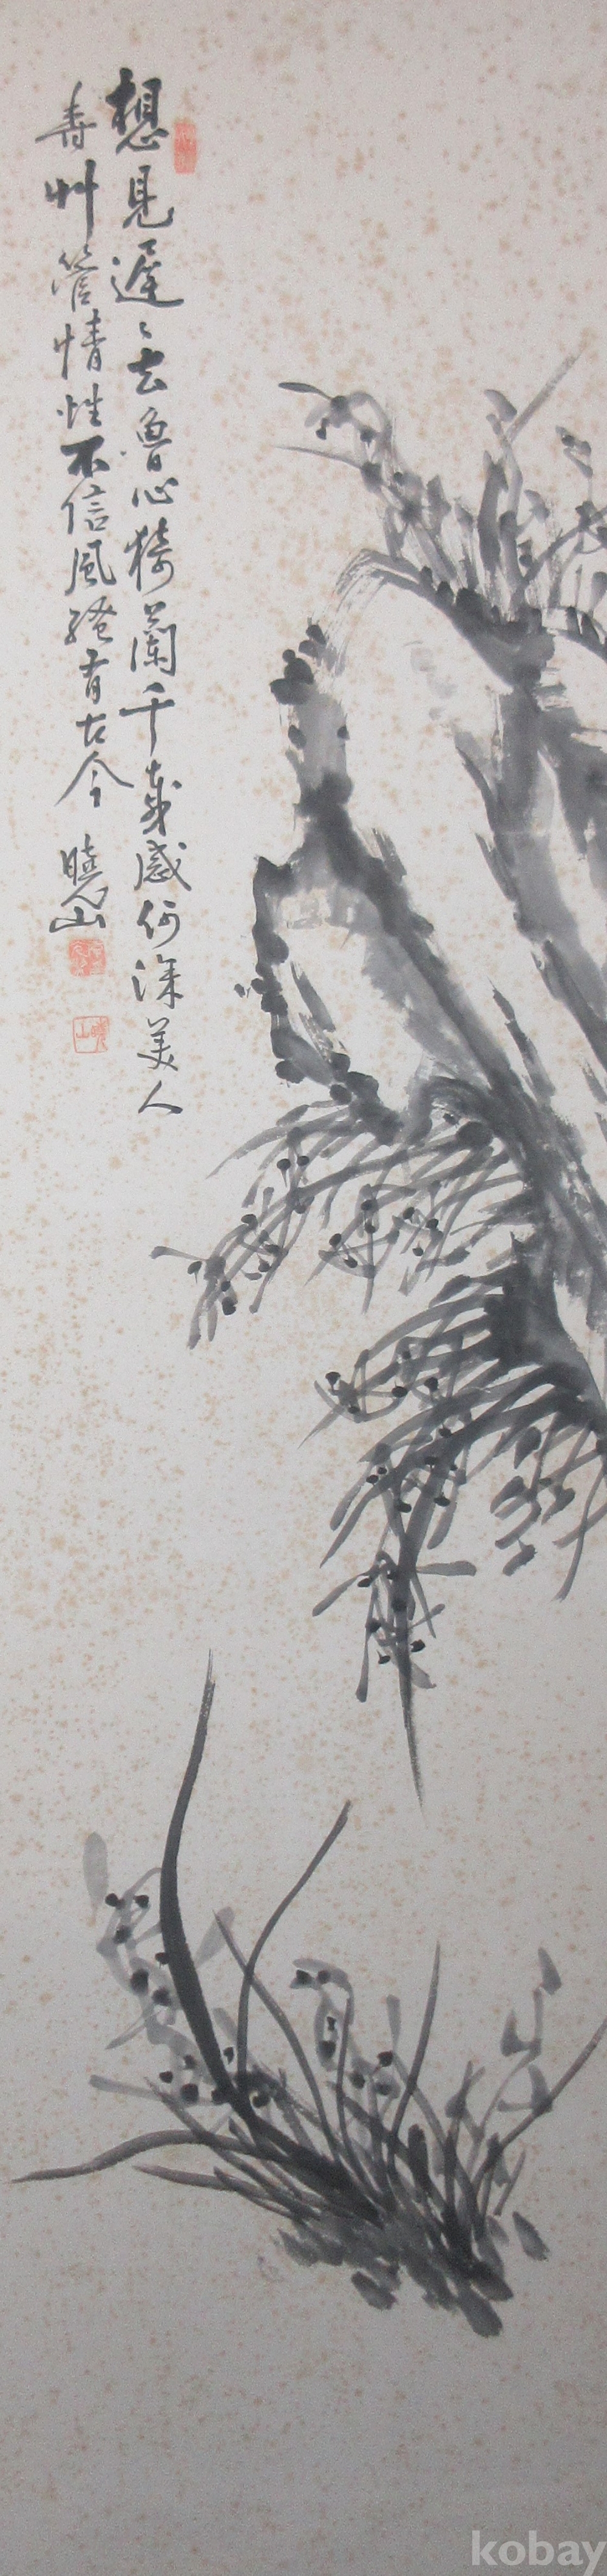 想見遲〻去魯心猗蘭千載感何深美人
香艸管情性不信風騷有古今 曉山
kobay